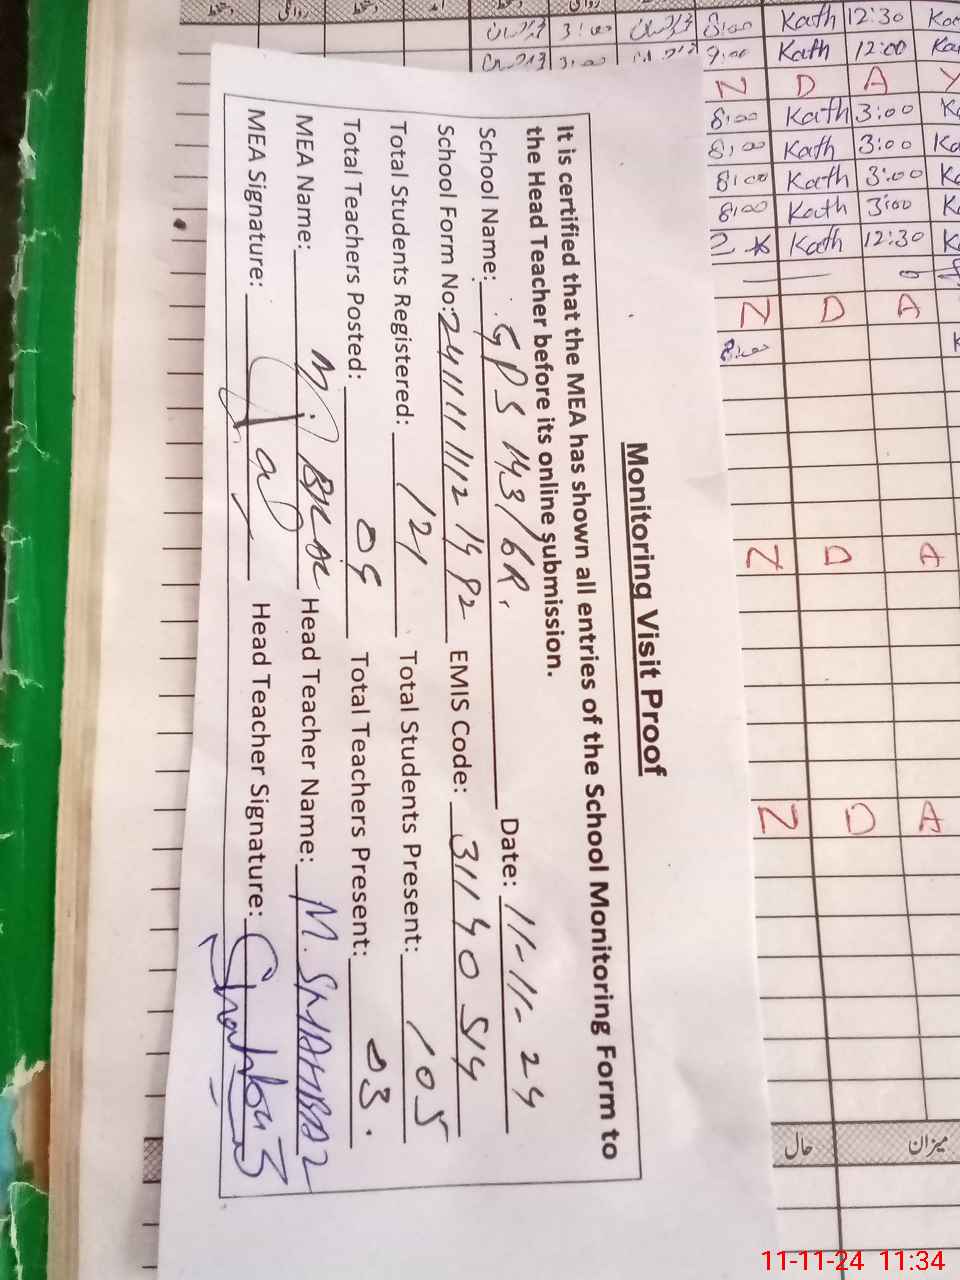 Monitoring Visit Proof
It is certified that the MEA has shown all entries of the School Monitoring Form to
the Head Teacher before its online submission.
School Name: GPS 143/6R. Date: 11-11-24
School Form No: EMIS Code: 31140514
Total Students Registered: 121 Total Students Present: 105
Total Teachers Posted: Total Teachers Present: 03.
MEA Name: Head Teacher Name: M. SHAHBAZ
MEA Signature: Head Teacher Signature: Shahbaz
3:00 8:00 Kath 12:30
3:00 9:00 Kath 12:00
Z D A Y
8:00 Kath 3:00
8:00 Kath 3:00
8:00 Kath 3:00
8:00 Kath 3:00
Kath 12:30
Z D A
8:00
Z D A
Z D A
حال میزان
11-11-24 11:34